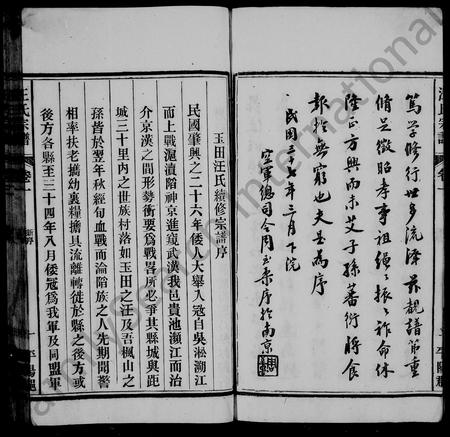 汪氏宗譜
卷一
篤學修行世多流澤茲觀譜節重
脩足徵昭孝事祖繩繩振振詐命休
陸正方興而未艾子孫蕃衍將食
報於無窮也夫是為序
民國三十七年三月下浣
空軍總司令周至柔序於南京
玉田汪氏續修宗譜序
民國肇興之二十六年倭人大舉入寇自吳淞溯江
而上戰滬瀆陷神京進窺武漢我邑貴池瀕江而治
介京漢之間形勢衝要為戰畧所必爭其縣城與距
城二十里內之世族村落如玉田之汪及吾楓山之
孫皆於翌年秋經旬血戰而淪陷族之人先期聞警
相率扶老攜幼裹糧擔具流離轉徙於縣之後方或
後方各縣至三十四年八月倭寇為我軍及同盟軍
汪氏宗譜
卷一
新序
一
平陽郡
familysearch international